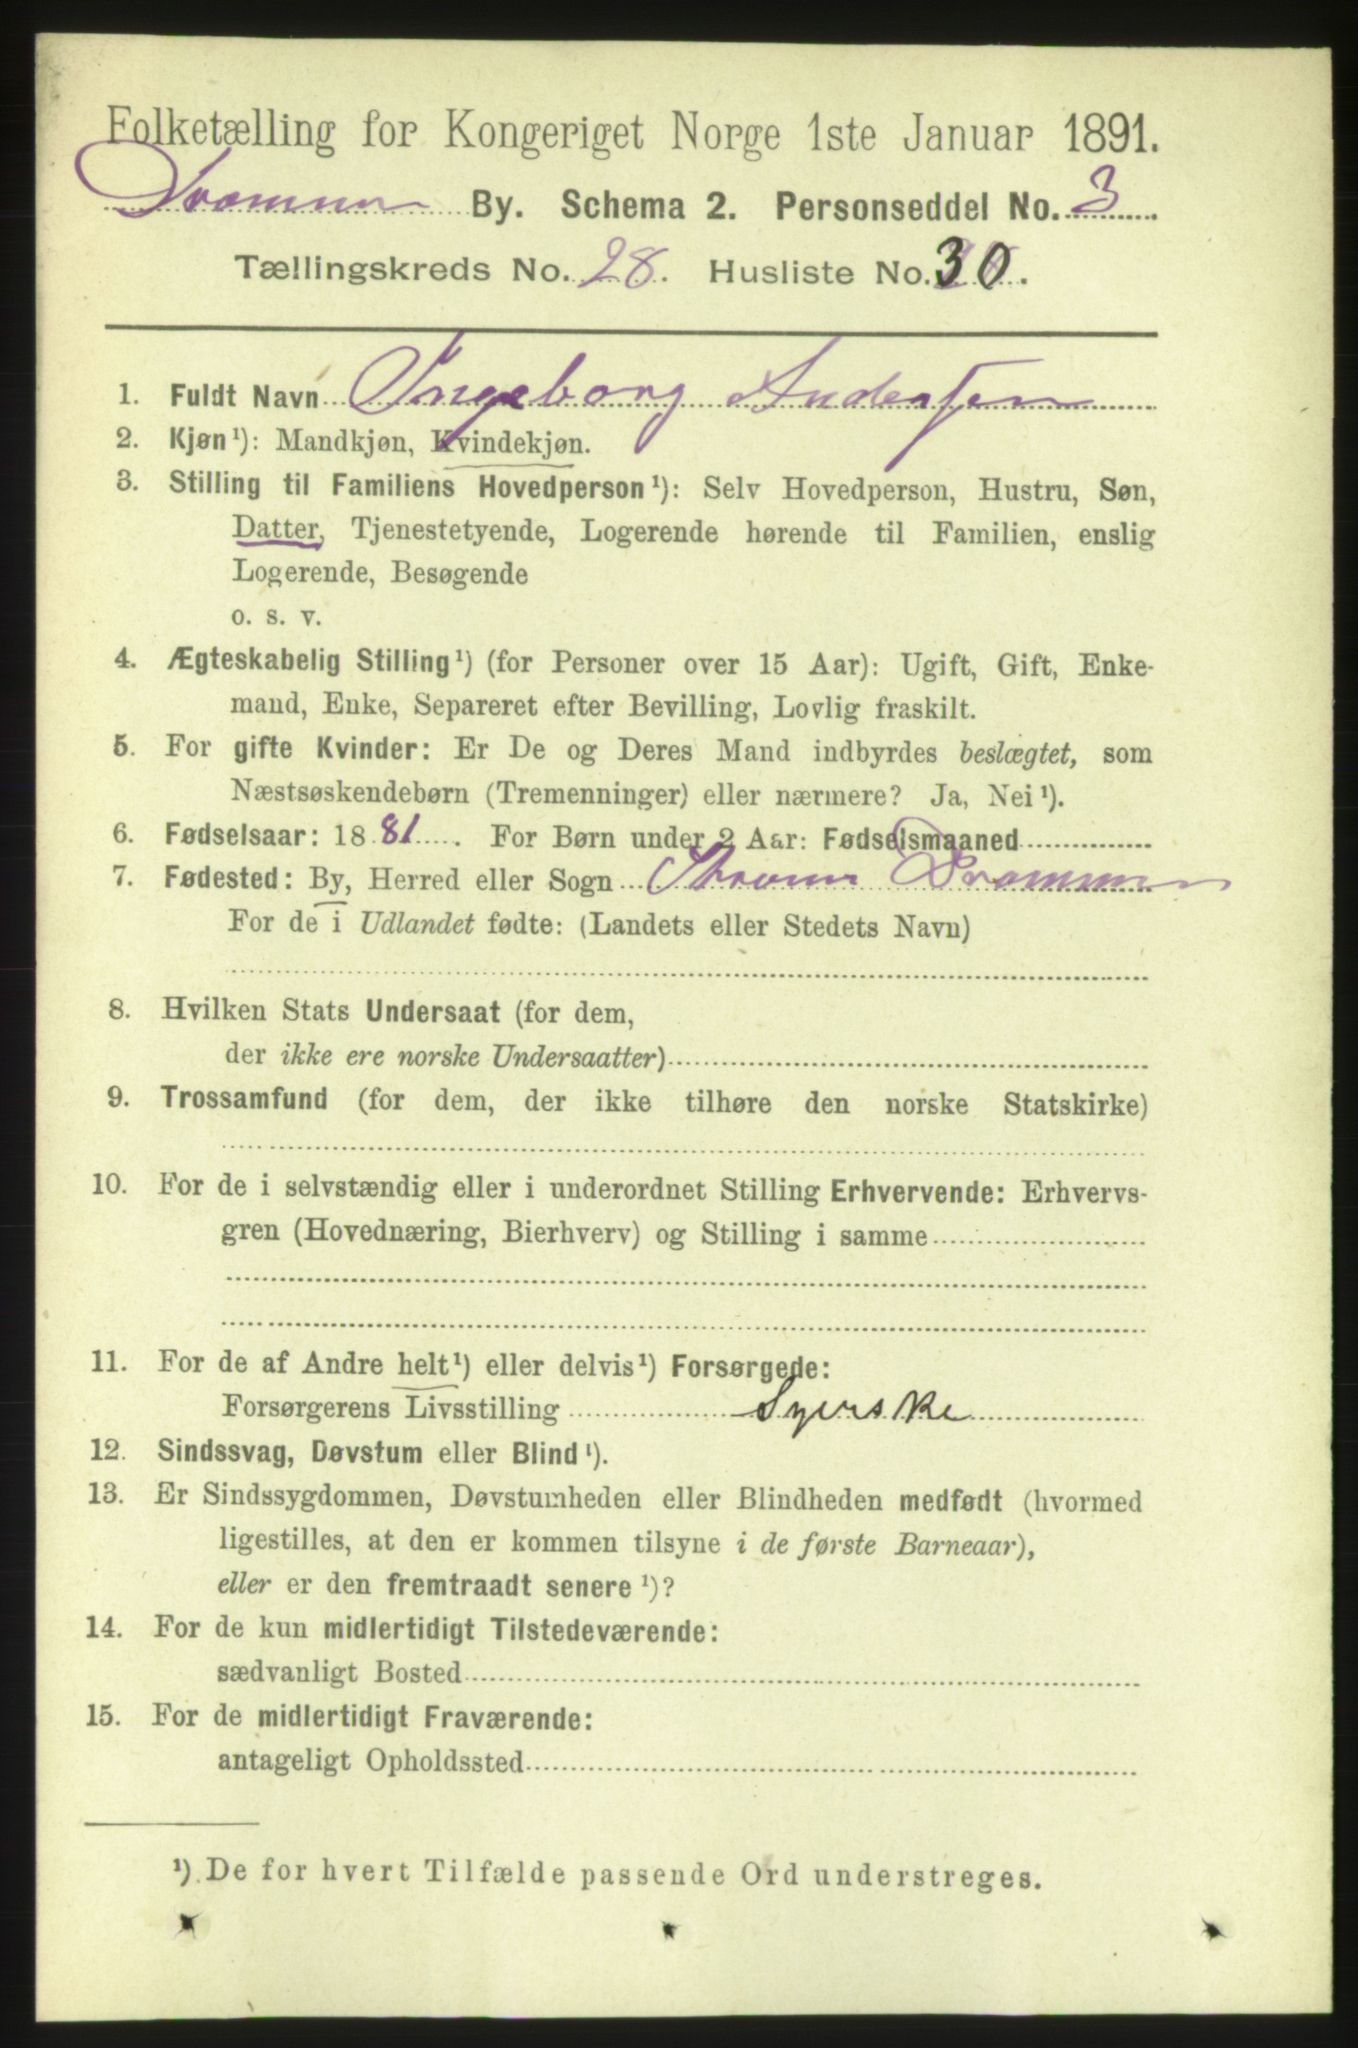 Folketælling for Kongeriget Norge 1ste Januar 1891.
Drammen By. Schema 2. Personseddel No. 3
Tællingskreds No. 28. Husliste No. 30.
1. Fuldt Navn Ingeborg Andersen
2. Kjøn¹): Mandkjøn, Kvindekjøn.
3. Stilling til Familiens Hovedperson¹): Selv Hovedperson, Hustru, Søn,
Datter, Tjenestetyende, Logerende hørende til Familien, enslig
Logerende, Besøgende
o. s. v.
4. Ægteskabelig Stilling¹) (for Personer over 15 Aar): Ugift, Gift, Enke-
mand, Enke, Separeret efter Bevilling, Lovlig fraskilt.
5. For gifte Kvinder: Er De og Deres Mand indbyrdes beslægtet, som
Næstsøskendebørn (Tremenninger) eller nærmere? Ja, Nei¹).
6. Fødselsaar: 1881. For Børn under 2 Aar: Fødselsmaaned
7. Fødested: By, Herred eller Sogn Strømsø Drammen
For de i Udlandet fødte: (Landets eller Stedets Navn)
8. Hvilken Stats Undersaat (for dem,
der ikke ere norske Undersaatter)
9. Trossamfund (for dem, der ikke tilhøre den norske Statskirke)
10. For de i selvstændig eller i underordnet Stilling Erhvervende: Erhvervs-
gren (Hovednæring, Bierhverv) og Stilling i samme
11. For de af Andre helt¹) eller delvis¹) Forsørgede:
Forsørgerens Livsstilling Syerske
12. Sindssvag, Døvstum eller Blind¹).
13. Er Sindssygdommen, Døvstumheden eller Blindheden medfødt (hvormed
ligestilles, at den er kommen tilsyne i de første Barneaar),
eller er den fremtraadt senere¹)?
14. For de kun midlertidigt Tilstedeværende:
sædvanligt Bosted
15. For de midlertidigt Fraværende:
antageligt Opholdssted
¹) De for hvert Tilfælde passende Ord understreges.